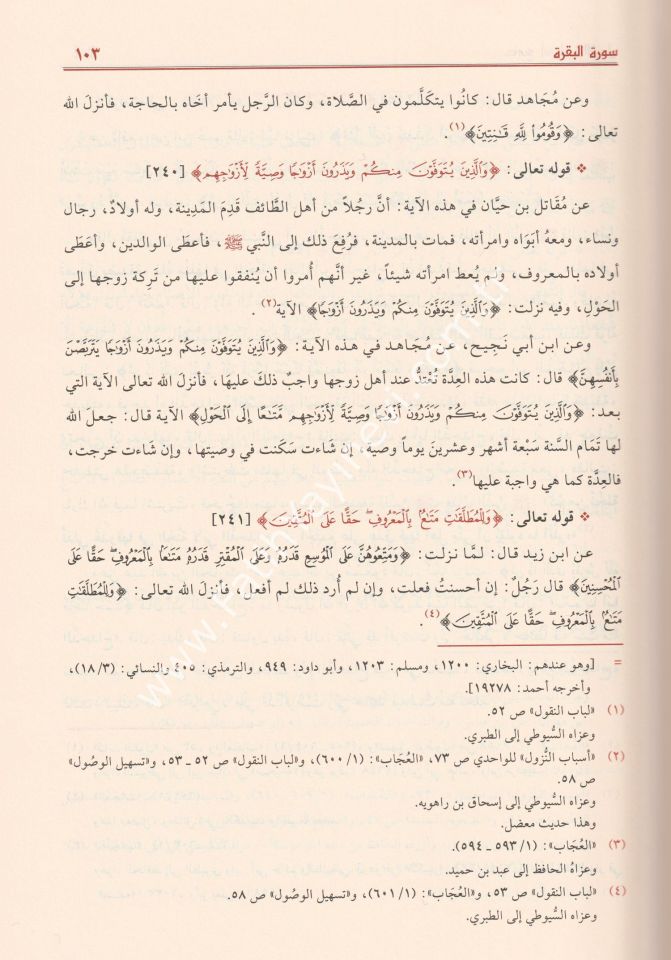 سورة البقرة ١٠٣
وعن مُجَاهد قال: كانُوا يتكلَّمون في الصَّلاة، وكان الرَّجل يأمر أخَاه بالحاجة، فأنزلَ الله
تعالى: ﴿وَقُومُوا۟ لِلَّهِ قَـٰنِتِينَ﴾(١).
❖ قوله تعالى: ﴿وَٱلَّذِينَ يُتَوَفَّوْنَ مِنكُمْ وَيَذَرُونَ أَزْوَٰجًا وَصِيَّةً لِّأَزْوَٰجِهِم﴾ [٢٤٠]
عن مُقَاتل بن حيَّان في هذه الآية: أنَّ رجُلاً من أهل الطَّائف قَدِمَ المَدِينة، وله أولادٌ، رجال
ونساء، ومعهُ أبَوَاه وامرأته، فمات بالمدينة، فرُفِعَ ذلك إلى النَّبي ﷺ، فأعطَى الوالدين، وأعطَى
أولاده بالمعروف، ولم يُعط امرأته شيئاً، غير أنَّهم أُمروا أن يُنفقوا عليها من تَرِكة زوجها إلى
الحَوْلِ، وفيه نزلت: ﴿وَٱلَّذِينَ يُتَوَفَّوْنَ مِنكُمْ وَيَذَرُونَ أَزْوَٰجًا﴾ الآية(٢).
وعن ابن أبي نَجيح، عن مُجَاهد في هذه الآية: ﴿وَٱلَّذِينَ يُتَوَفَّوْنَ مِنكُمْ وَيَذَرُونَ أَزْوَٰجًا يَتَرَبَّصْنَ
بِأَنفُسِهِنَّ﴾ قال: كانت هذه العِدَّة تُعْتَدُّ عند أهل زوجها واجبٌ ذلكَ عليهَا، فأنزلَ الله تعالى الآية التي
بعد: ﴿وَٱلَّذِينَ يُتَوَفَّوْنَ مِنكُمْ وَيَذَرُونَ أَزْوَٰجًا وَصِيَّةً لِّأَزْوَٰجِهِم مَّتَـٰعًا إِلَى ٱلْحَوْلِ﴾ الآية قال: جعلَ الله
لها تَمَام السَّنة سَبْعة أشهر وعشرينَ يوماً وصية، إن شاءَت سَكَنت في وصيتها، وإن شَاءت خرجت،
فالعِدَّة كما هي واجبة عليها(٣).
❖ قوله تعالى: ﴿وَلِلْمُطَلَّقَـٰتِ مَتَـٰعٌۢ بِٱلْمَعْرُوفِ ۖ حَقًّا عَلَى ٱلْمُتَّقِينَ﴾ [٢٤١]
عن ابن زيد قال: لمَّا نزلت: ﴿وَمَتِّعُوهُنَّ عَلَى ٱلْمُوسِعِ قَدَرُهُۥ وَعَلَى ٱلْمُقْتِرِ قَدَرُهُۥ مَتَـٰعًۢا بِٱلْمَعْرُوفِ ۖ حَقًّا عَلَى
ٱلْمُحْسِنِينَ﴾ قال رَجُلٌ: إن أحسنتُ فعلت، وإن لم أُرد ذلك لم أفعل، فأنزلَ الله تعالى: ﴿وَلِلْمُطَلَّقَـٰتِ
مَتَـٰعٌۢ بِٱلْمَعْرُوفِ ۖ حَقًّا عَلَى ٱلْمُتَّقِينَ﴾(٤).
= [وهو عندهم: البخاري: ١٢٠٠، ومسلم: ١٢٠٣، وأبو داود: ٩٤٩، والترمذي: ٤٠٥ والنسائي: (١٨/٣)،
وأخرجه أحمد: ١٩٢٧٨].
(١) «لباب النقول» ص ٥٢.
وعزاه السُّيوطي إلى الطبري.
(٢) «أسباب النُّزول» للواحدي ص ٧٣، «العُجَاب»: (٦٠٠/١)، و«لباب النقول» ص ٥٢ ـ ٥٣، و«تسهيل الوصُول»
ص ٥٨.
وعزاه السُّيوطي إلى إسحاق بن راهويه.
وهذا حديث معضل.
(٣) «العُجَاب»: (٥٩٣/١ ـ ٥٩٤).
وعزاهُ الحافظ إلى عبد بن حميد.
(٤) «لباب النقول» ص ٥٣، و«العُجَاب»: (٦٠١/١)، و«تسهيل الوصُول» ص ٥٨.
وعزاه السُّيوطي إلى الطبري.